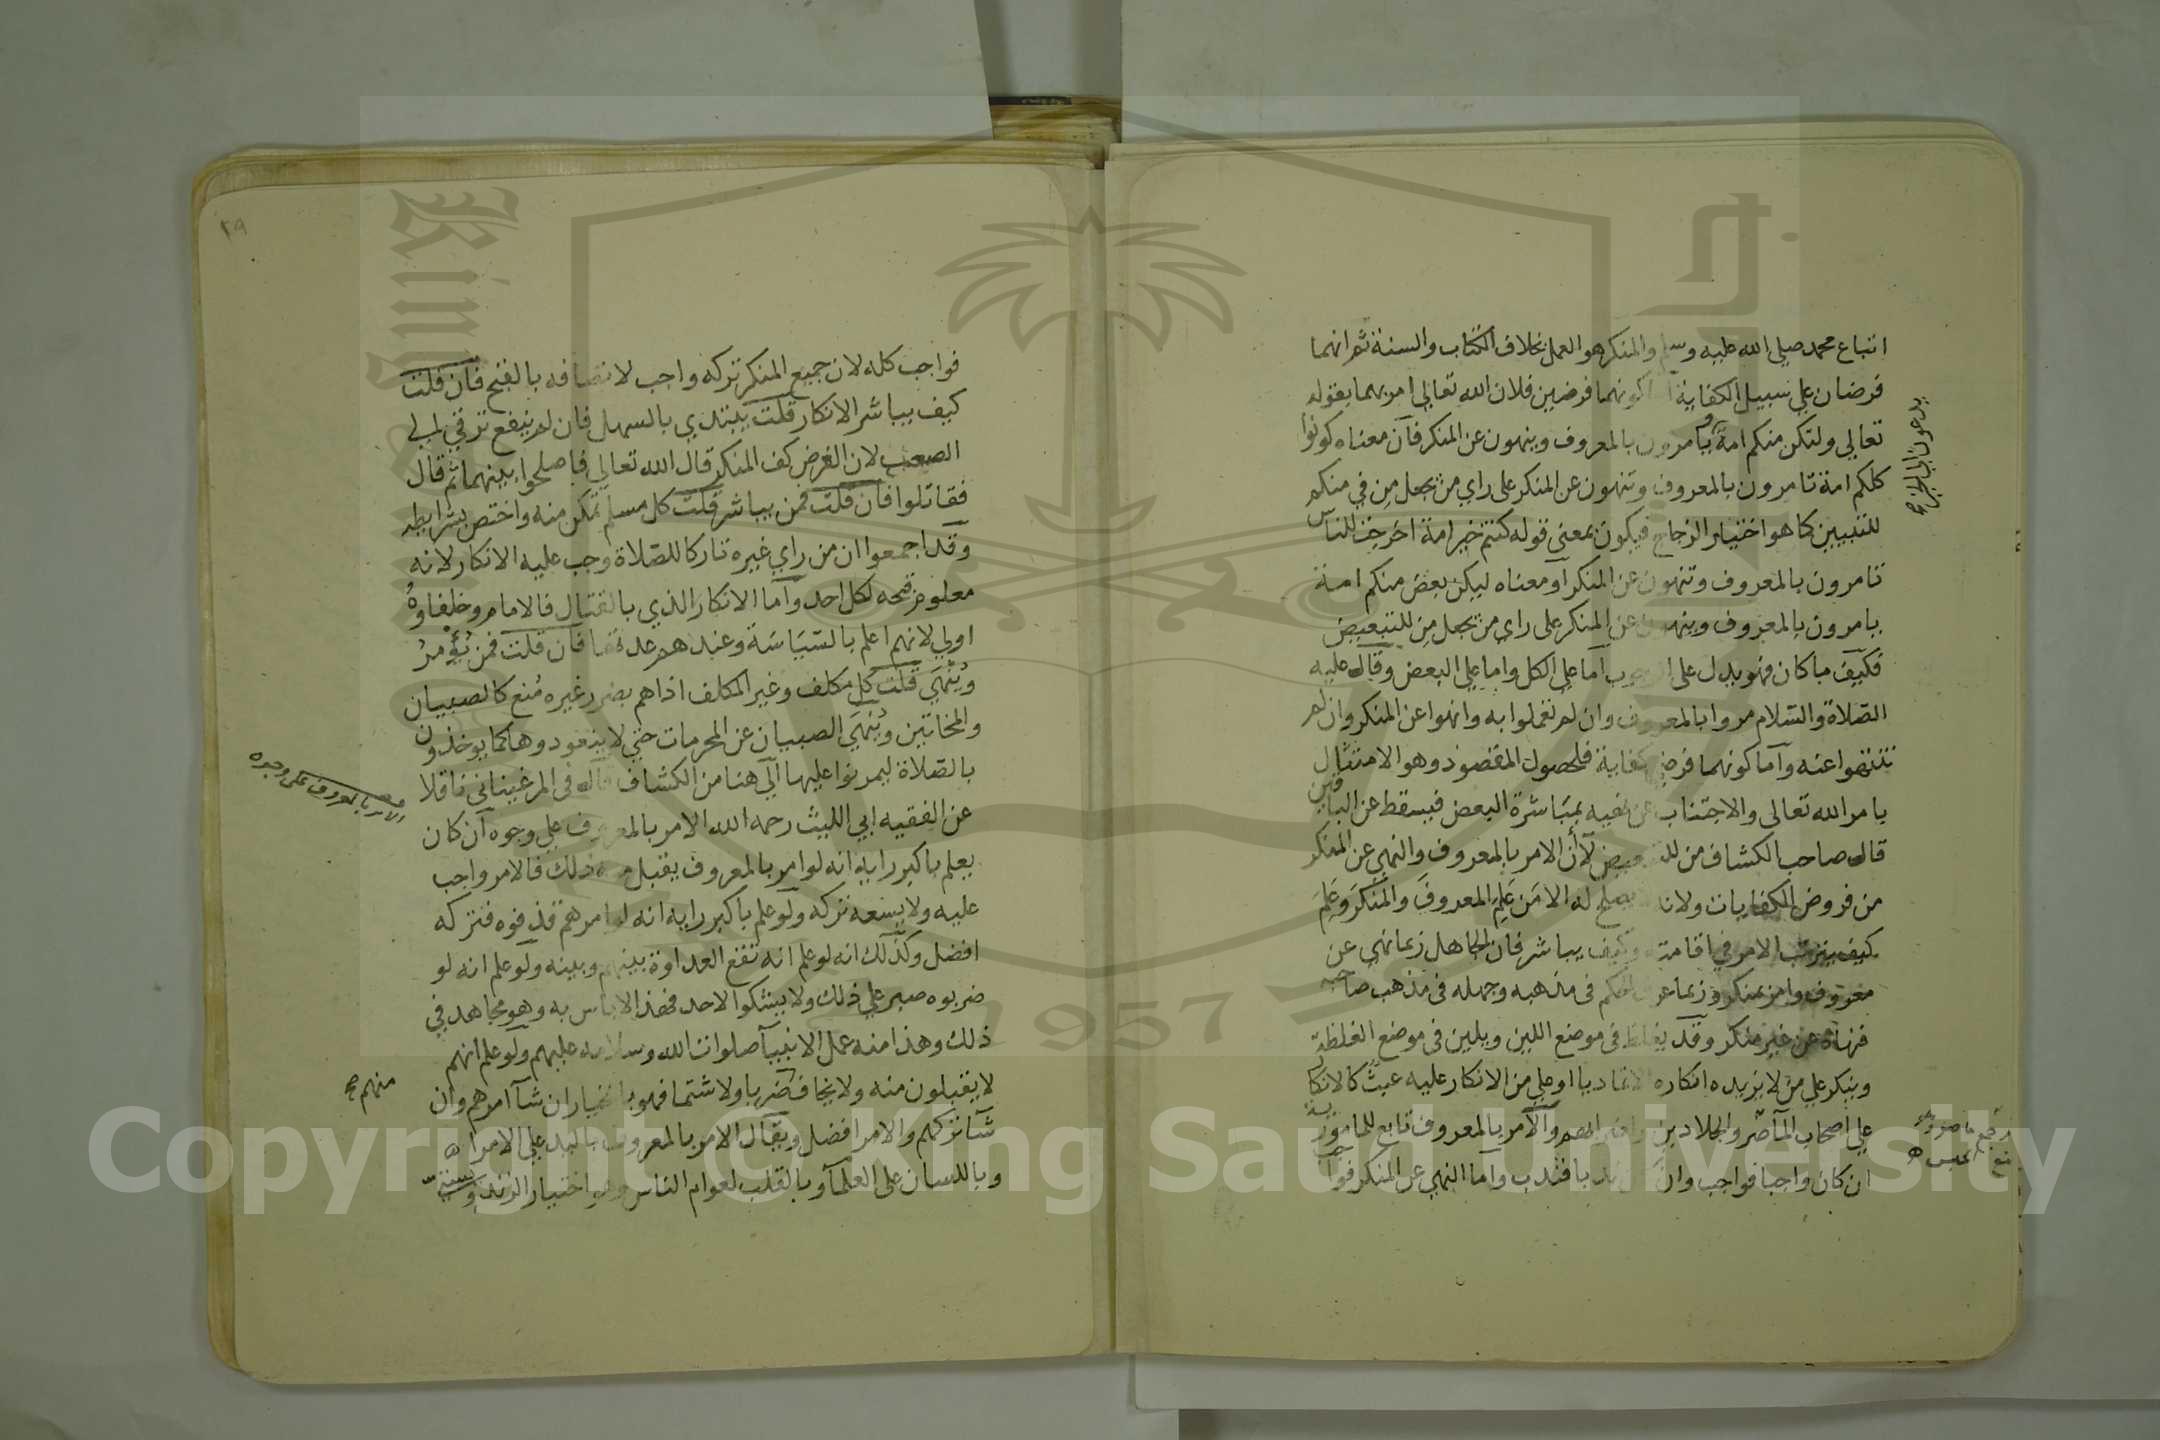 اتباع محمد صلي الله عليه وسلم والمنكر هو العمل بخلاف الكتاب والسنة ثم انهما
فرضان علي سبيل الكفاية كونهما فرضين فلان الله تعالي امر بهما بقوله
تعالي ولتكن منكم امة ويامرون بالمعروف وينهون عن المنكر فان معناه كونوا
يدعون الي الخير صح
كلكم امة تامرون بالمعروف وتنهون عن المنكر على راي من يجعل من في منكم
للتبيين كما هو اختيار الزجاج فيكون بمعنى قوله كنتم خير امة اخرجت للناس
تامرون بالمعروف وتنهون عن المنكر او معناه ليكن بعض منكم امة
يامرون بالمعروف وينهون عن المنكر على راي من يجعل من للتبعيض
فكيف ما كان فهو يدل على الوجوب اما على الكل واما علي البعض وقال عليه
الصلاة والسلام مروا بالمعروف وان لم تعملوا به وانهوا عن المنكر وان لم
تنتهوا عنه واما كونهما فرض كفاية فلحصول المقصود وهو الامتثال
بامر الله تعالى والاجتناب عن نهيه بمباشرة البعض فيسقط عن الباقين
قال صاحب الكشاف من للتبعيض لان الامر بالمعروف والنهي عن المنكر
من فروض الكفايات ولانه لا يصلح له الا من علم المعروف والمنكر وعلم
كيف يترتب الامر في اقامته وكيف يباشر فان الجاهل ربما نهى عن
معروف وامر بمنكر وربما عرف الحكم في مذهبه وجهله في مذهب صاحبه
فنهاه عن غير منكر وقد يغلظ في موضع اللين ويلين في موضع الغلظة
وينكر علي من لا يزيده انكاره الا تماديا او على من الانكار عليه عبث كالانكار
علي اصحاب المآصر والجلادين واضرابهم والامر بالمعروف تابع للمامور به
ان كان واجبا فواجب وان كان ندبا فندب واما النهي عن المنكر فواجب
٢٩
فواجب كله لان جميع المنكر تركه واجب لاتصافه بالقبح فان قلت
كيف يباشر الانكار قلت يبتدي بالسهل فان لم ينفع ترقي الي
الصعب لان الغرض كف المنكر قال الله تعالي فاصلحوا بينهما ثم قال
فقاتلوا فان قلت فمن يباشر قلت كل مسلم تمكن منه واختص بشرايطه
وقد اجمعوا ان من راي غيره تاركا للصلاة وجب عليه الانكار لانه
معلوم قبحه لكل احد واما الانكار الذي بالقتال فالامام وخلفاوه
اولي لانهم اعلم بالسياسة وعندهم عدتها فان قلت فمن يؤمر
وينهى قلت كل مكلف وغير المكلف اذا هم بضرر غيره منع كالصبيان
والمجانين وينهى الصبيان عن المحرمات حتي لا يتعودوها كما يوخذون
بالصلاة ليمرنوا عليها الي هنا من الكشاف قال في المرغيناني ناقلا
الامر بالمعروف على وجوه
عن الفقيه ابي الليث رحمه الله الامر بالمعروف علي وجوه ان كان
يعلم باكبر رايه انه لو امر بالمعروف يقبل منه ذلك فالامر واجب
عليه ولا يسعه تركه ولو علم باكبر رايه انه لو امرهم قذفوه فتركه
افضل وكذلك انه لو علم انه تقع العداوة بينهم وبينه ولو علم انه لو
ضربوه صبر علي ذلك ولا يشكوا لاحد فهذا لا باس به وهو مجاهد في
ذلك وهذا منه عمل الانبيآ صلوات الله وسلامه عليهم ولو علم انهم
لا يقبلون منه ولا يخاف ضربا ولا شتما فهو بالخيار ان شآ امرهم وان
منهم صح
شآ تركهم والامر افضل ويقال الامر بالمعروف باليد علي الامرا
وباللسان على العلمآ وبالقلب لعوام الناس وهو اختيار الزند
Copyright © King Saud University
1957